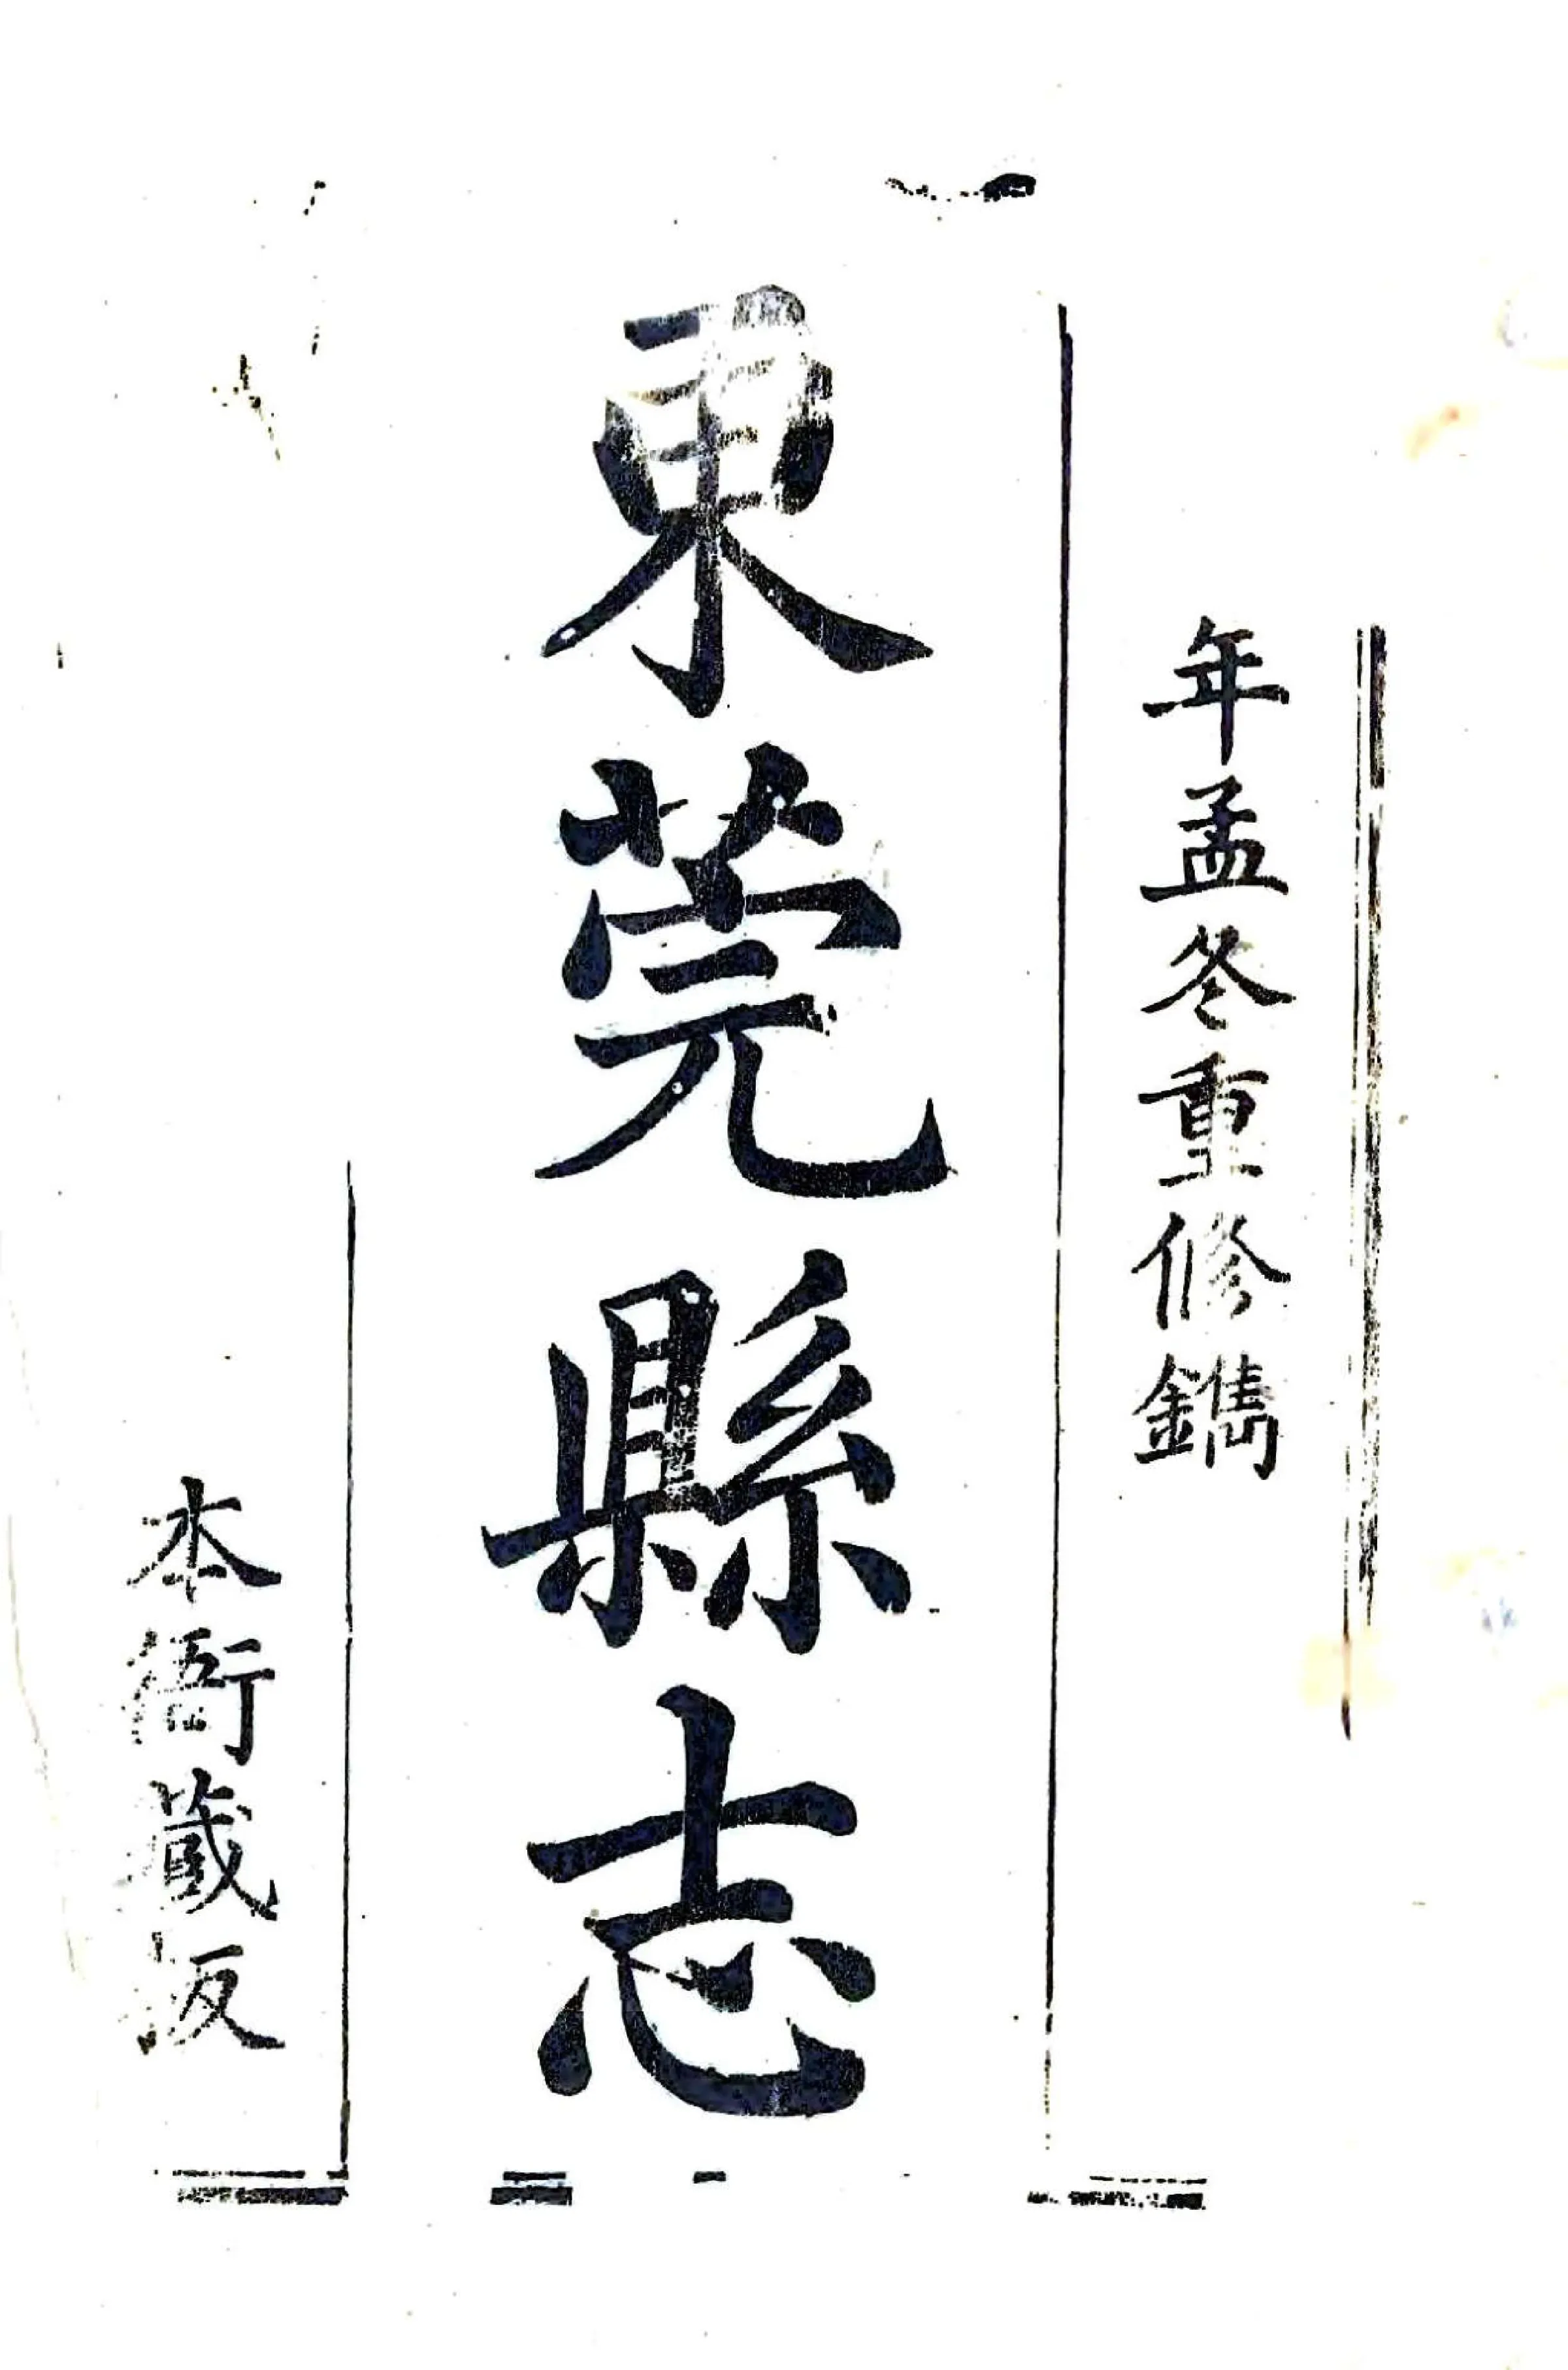 年孟冬重修鐫
東莞縣志
本衙藏板